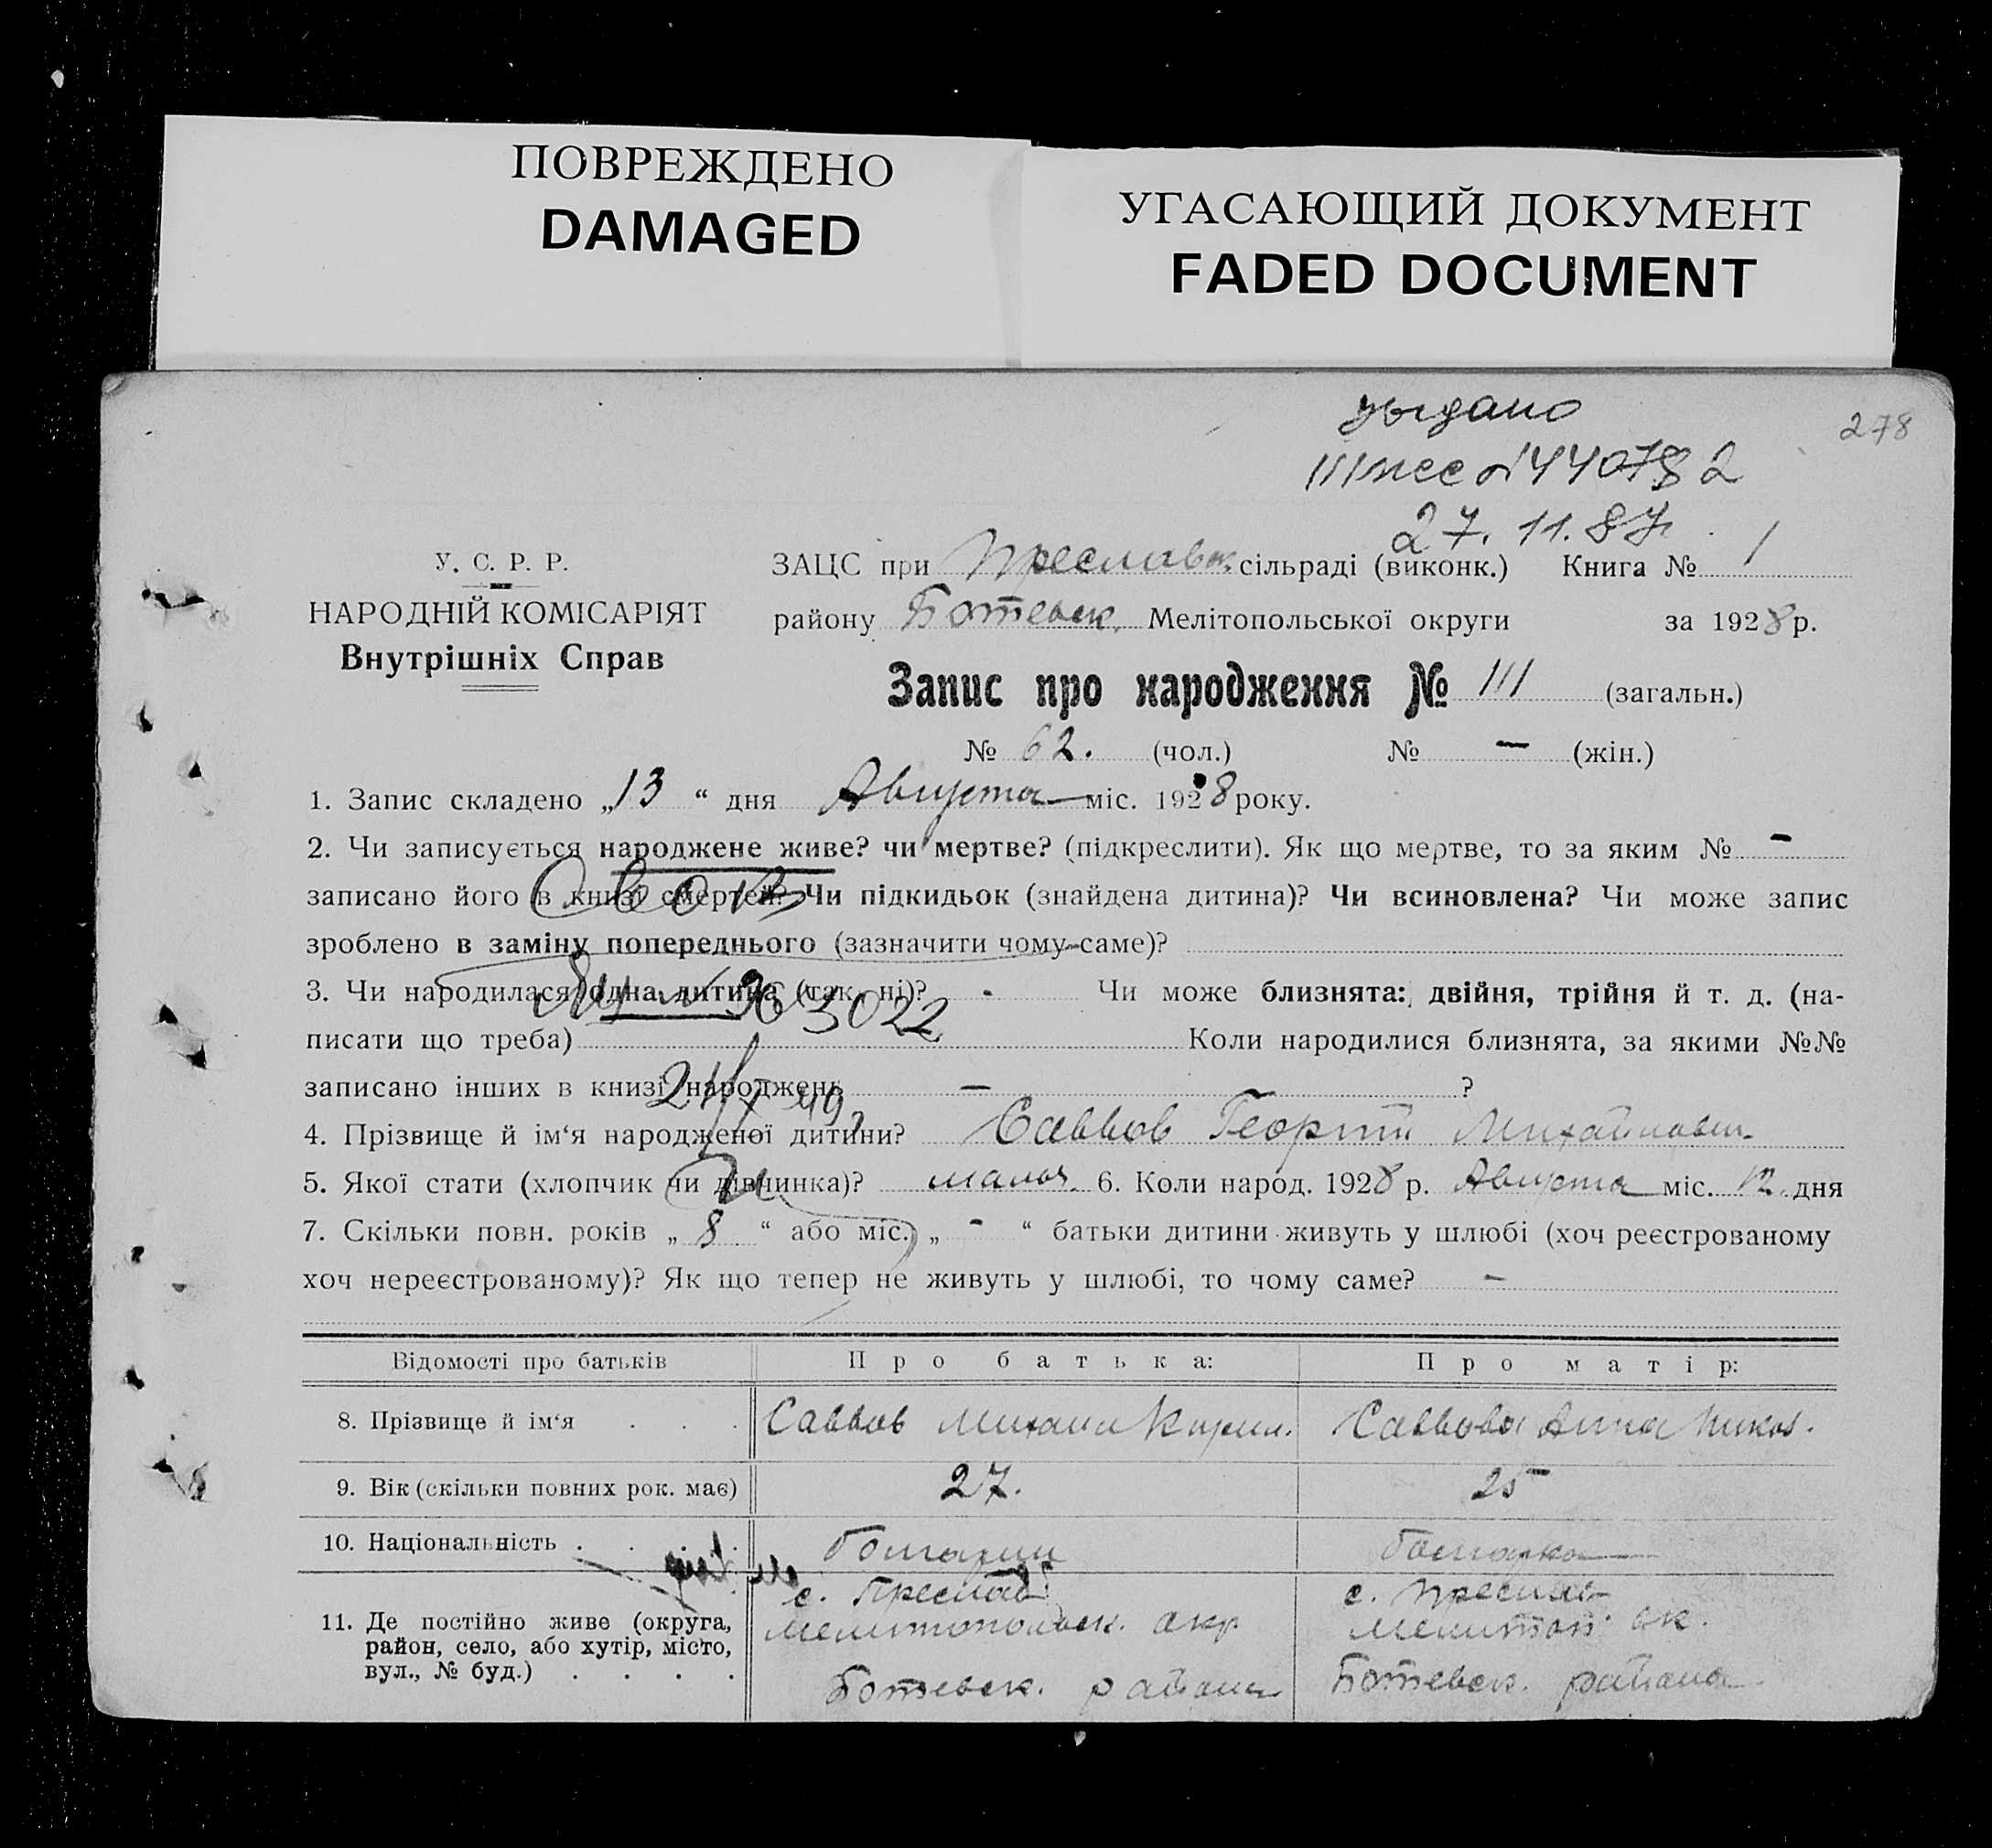 ПОВРЕЖДЕНО
DAMAGED
УГАСАЮЩИЙ ДОКУМЕНТ
FADED DOCUMENT
выдано
278
27. 11. 87
У. С. Р. Р.
НАРОДНІЙ КОМІСАРІЯТ
Внутрішніх Справ
ЗАЦС при Преславск. сільраді (виконк.) Книга № 1
району Ботевск. Мелітопольської округи за 1928 р.
Запис про народження № 111 (загальн.)
№ 62. (чол.) № — (жін.)
1. Запис складено „13“ дня Августа міс. 1928 року.
2. Чи записується народжене живе? чи мертве? (підкреслити). Як що мертве, то за яким № —
записано його в книзі смертей? Чи підкидьок (знайдена дитина)? Чи всиновлена? Чи може запис
зроблено в заміну попереднього (зазначити чому саме)?
3. Чи народилася одна дитина (так, ні)? - Чи може близнята: двійня, трійня й т. д. (на-
писати що треба) Коли народилися близнята, за якими №№
записано інших в книзі народжень — ?
4. Прізвище й ім‘я народженої дитини? Саввов Георгий Михайлович
5. Якої стати (хлопчик чи дівчинка)? мальч. 6. Коли народ. 1928 р. Августа міс. 12 дня
7. Скільки повн. років „ 8 “ або міс. „ - “ батьки дитини живуть у шлюбі (хоч реєстрованому
хоч нереєстрованому)? Як що тепер не живуть у шлюбі, то чому саме? —
Відомості про батьків Про батька: Про матір:
8. Прізвище й ім‘я Саввов Михаил Кирил. Саввова Анна Никол.
9. Вік (скільки повних рок. має) 27. 25
10. Національність болгарин болгарка
11. Де постійно живе (округа, район, село, або хутір, місто, вул., № буд.)
с. Преслав Мелитопольск. окр Ботевск. района
с. Преслав Мелитоп. ок. Ботевск. района